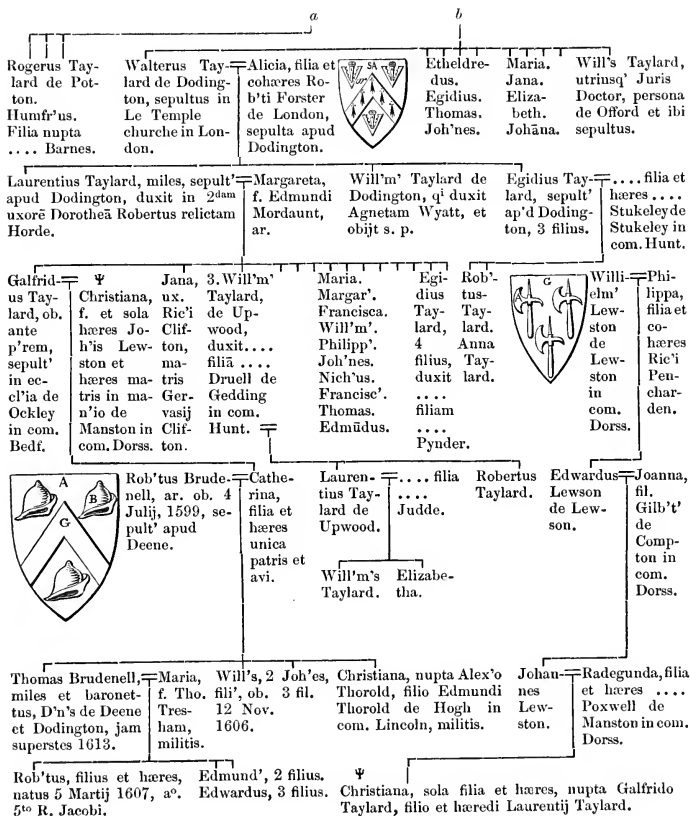 a
b
Rogerus Tay-
lard de Pot-
ton.
Humfr'us.
Filia nupta
.... Barnes.
Walterus Tay-
lard de Doding-
ton, sepultus in
Le Temple
churche in Lon-
don.
Alicia, filia et
cohæres Ro-
b'ti Forster
de London,
sepulta apud
Dodington.
SA
Etheldre-
dus.
Egidius.
Thomas.
Joh'nes.
Maria.
Jana.
Eliza-
beth.
Johāna.
Will's Taylard,
utriusq' Juris
Doctor, persona
de Offord et ibi
sepultus.
Laurentius Taylard, miles, sepult'
apud Dodington, duxit in 2dam
uxorē Dorotheā Robertus relictam
Horde.
Margareta,
f. Edmundi
Mordaunt,
ar.
Will'm' Taylard de
Dodington, qi duxit
Agnetam Wyatt, et
obijt s. p.
Egidius Tay-
lard, sepult'
ap'd Doding-
ton, 3 filius.
.... filia et
hæres ....
Stukeley de
Stukeley in
com. Hunt.
Galfrid-
us Tay-
lard, ob.
ante
p'rem,
sepult'
in ec-
cl'ia de
Ockley
in com.
Bedf.
Ψ
Christiana,
f. et sola
hæres Jo-
h'is Lew-
ston et
hæres ma-
tris in ma-
n'io de
Manston in
com. Dorss.
Jana,
ux.
Ric'i
Clif-
ton,
ma-
tris
Ger-
vasij
Clif-
ton.
3. Will'm'
Taylard,
de Up-
wood,
duxit....
filiā ....
Druell de
Gedding
in com.
Hunt.
Maria.
Margar'.
Francisca.
Will'm'.
Philipp'.
Joh'nes.
Nich'us.
Francisc'.
Thomas.
Edmūdus.
Egi-
dius
Tay-
lard,
4
filius,
duxit
....
filiam
....
Pynder.
Rob'-
tus-
Tay-
lard.
Anna
Tay-
lard.
G
A
Willi-
elm'
Lew-
ston
de
Lew-
ston
in
com.
Dorss.
Phi-
lippa,
filia et
co-
hæres
Ric'i
Pen-
char-
den.
A
B
G
Rob'tus Brude-
nell, ar. ob. 4
Julij, 1599, se-
pult' apud
Deene.
Cathe-
rina,
filia et
hæres
unica
patris et
avi.
Lauren-
tius Tay-
lard de
Upwood.
.... filia
....
Judde.
Robertus
Taylard.
Edwardus
Lewson
de Lew-
son.
Joanna,
fil.
Gilb't'
de
Comp-
ton in
com.
Dorss.
Will'm's
Taylard.
Elizabe-
tha.
Thomas Brudenell,
miles et baronet-
tus, D'n's de Deene
et Dodington, jam
superstes 1613.
Maria,
f. Tho.
Tres-
ham,
militis.
Will's, 2
fili', ob.
12 Nov.
1606.
Joh'es,
3 fil.
Christiana, nupta Alex'o
Thorold, filio Edmundi
Thorold de Hogh in
com. Lincoln, militis.
Johan-
nes
Lew-
ston.
Radegunda, filia
et hæres ....
Poxwell de
Manston in com.
Dorss.
Rob'tus, filius et hæres,
natus 5 Martij 1607, ao.
5to R. Jacobi.
Edmund', 2 filius.
Edwardus, 3 filius.
Ψ
Christiana, sola filia et hæres, nupta Galfrido
Taylard, filio et hæredi Laurentij Taylard.